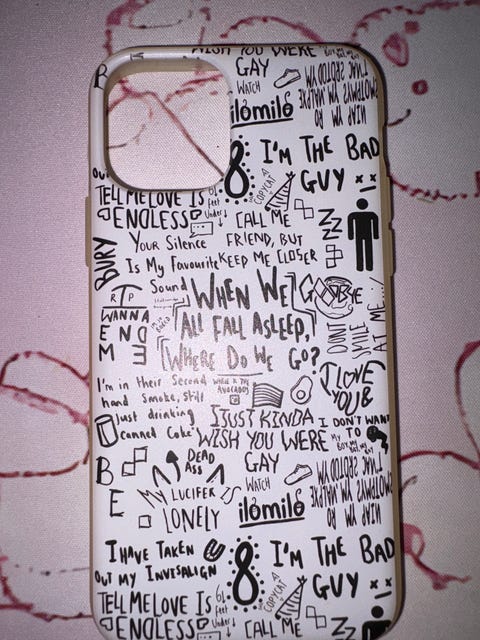 WISH YOU WERE
GAY
WATCH
ilomilo
8
I'M THE BAD
GUY
COPYCAT
TELL ME LOVE IS
ENDLESS
6 Feet
Under
CALL ME
FRIEND, BUT
KEEP ME CLOSER
Your Silence
Is My Favourite
Sound
BURY
R P
WANNA
END
ME
WHEN WE
ALL FALL ASLEEP,
WHERE DO WE GO?
GOODBYE
DON'T
SMILE
AT ME...
I LOVE
YOU
8
I'm in their Second
hand Smoke, Still
Just drinking
Canned Coke
WHERE R THE
AVOCADOS
I JUST KINDA
WISH YOU WERE
GAY
I DON'T WANT
TO
B
E
DEAD
ASS
MY LUCIFER IS
LONELY
WATCH
ilomilo
I HAVE TAKEN
OUT MY INVISALIGN
8
I'M THE BAD
GUY
COPYCAT
TELL ME LOVE IS
ENDLESS
6 Feet
Under
CALL ME